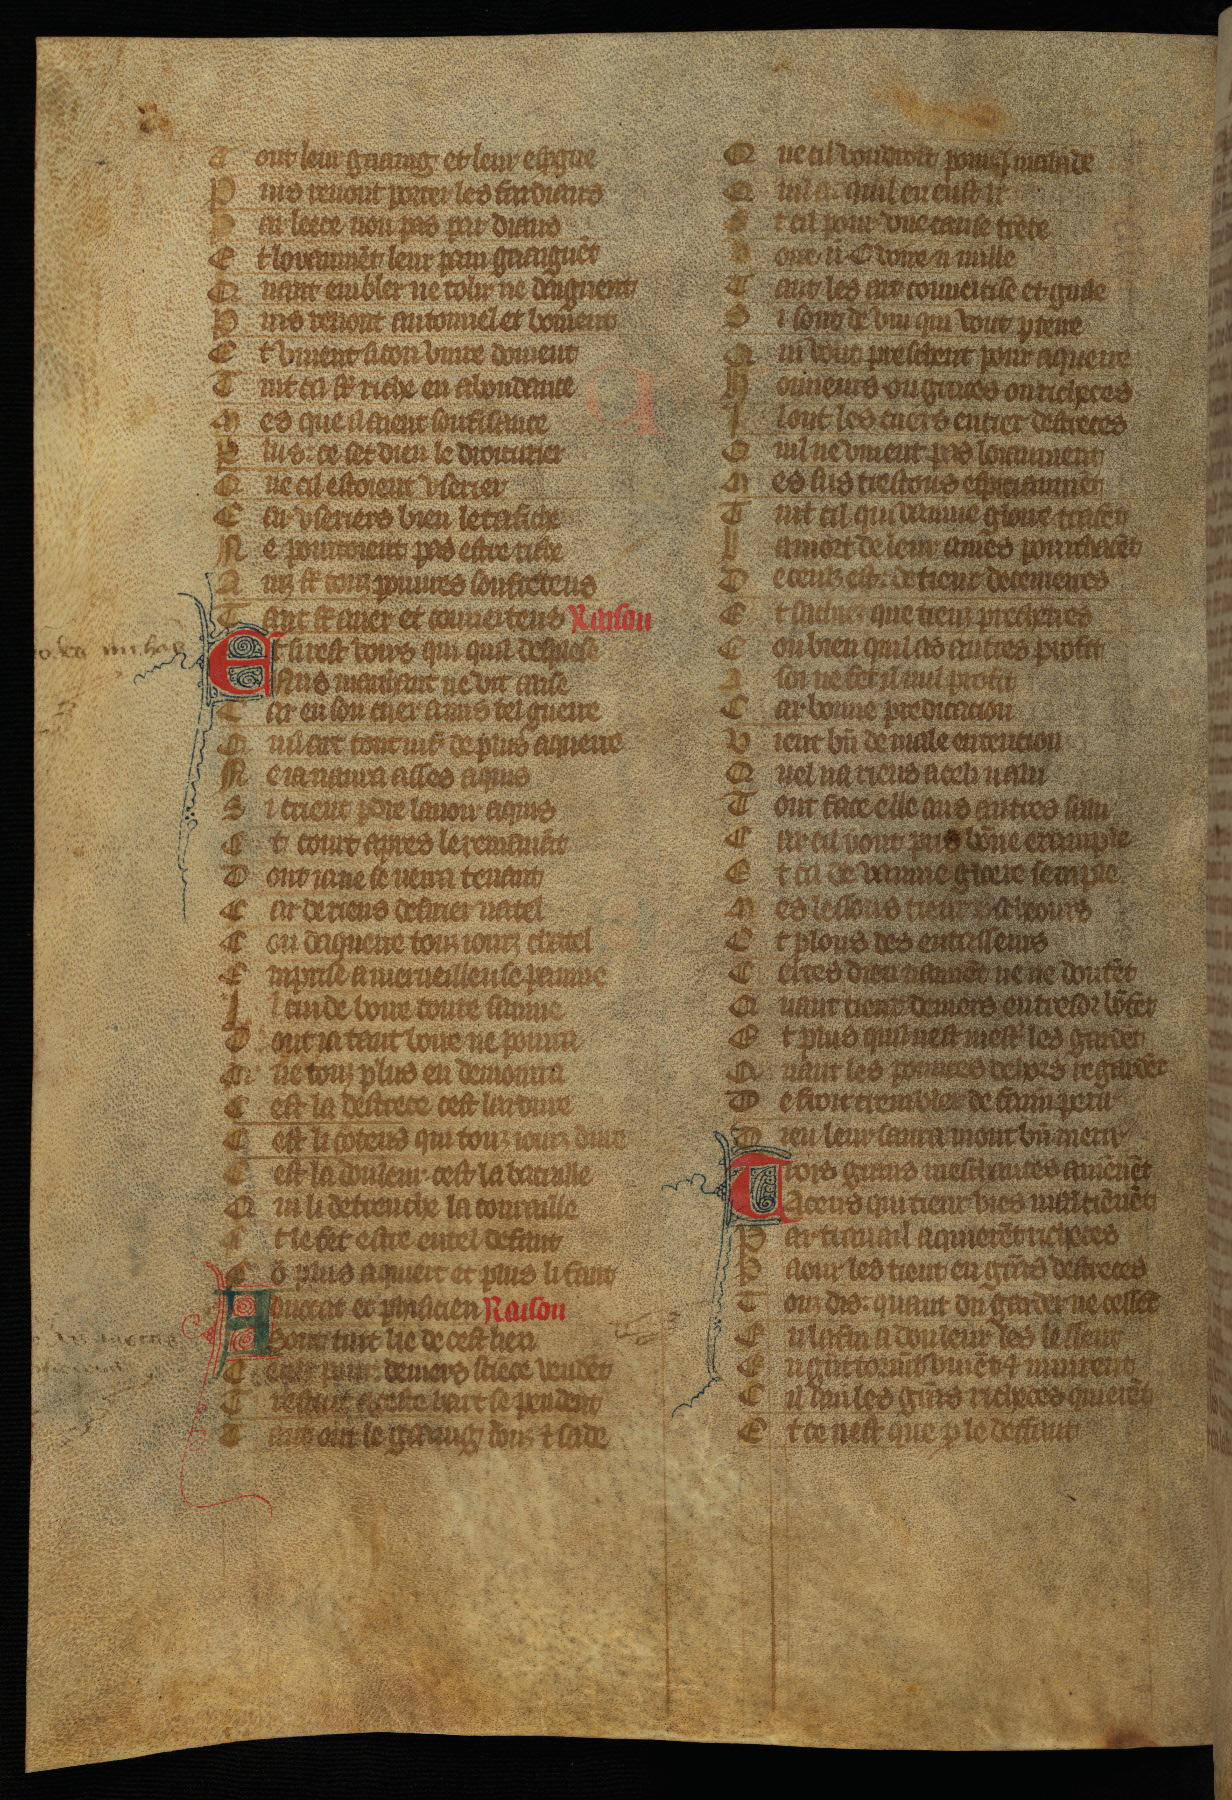 T out leur gaaing et leur espgne
P uis revont porter les fardiaus
P ar leece non pas par diaus
E t loyaumēt leur pain gaaignēt
Q uant embler ne tolir ne daignent
P uis revont au tonnel et boivent
E t vivent si con vivre doivent
T uit cil st riche en abondance
M es que il aient souffisance
P lus ce set dieu le droiturier
Q ue cil estoient vserier
C ar vseriers bien le tafiche
N e pourroient pas estre riche
A inz st touz povures souffreteus
T ant st aver et couveiteus Raison
E t si rest voirs qui quil desplese
Nus marchant ne vit aaise
C ar en son cuer a mis tel guerre
Q uil art touz vis de plus aquerre
N e ia naura asses aquis
S i crient pdre lavoir aquis
E t court apres le remanāt
D ont ia ne se verra tenant
C ar de riens desirier na tel
C on daquerre touz iourz chatel
E mprise a merveilleuse painne
I l tinde boire toute sainne
D ont ia tant boire ne pourra
Q ue touz plus en demorra
C est la destrece cest lardure
C est li coteus qui touz iourz dure
C est la douleur cest la bataille
Q ui li detrenche la couraille
E t le fet estre en tel defaut
C ō plus aquiert et plus li faut
A duocat et phisicien Raison
Sont tuit lie de cest lien
C eulz pour deniers science vendēt
T restuit a ceste hart se pendent
T ant ont le gaaing douz t sade
Q ue cil voudroit pour .j. malade
Q uil a quil en eust .lx.
E t cil pour vne cause trēte
Voire .ii. C. voire .ii. mille
T ant les art couveitise et guile
S i sont de vin qui vont p terre
Q ui vont preschent pour aquerre
H onneurs ou graces ou richeces
I l ont les cuers en tier destreces
Q uil ne vivent pas loiaument
M es sus trestous espciaumēt
T uit cil qui vainne gloire tracēt
L a mort de leur ames pourchacēt
D eceuz est de tieux decevierres
E t sachiez que tieuz preechierres
C ou bien quil as autres profit
A soi ne fet il nul profit
C ar bonne predicacion
V ient bñ de male entencion
Q uel na riens a celi valu
T out face elle aus autres salu
C ar cil vont pnās bōne example
E t cil de vainne gloire semple
M es lessons tieux preecheours
E t plons des entasseurs
C eltes dieu naimēt ne ne doutēt
Q uant tiex deniers en tresor boutēt
E t plus quil nest mest les gardēt
Q uant les povres dehors regardēt
D e froit trembler de fain perir
D ieu leur saura mont bñ merir
T rois grans meschances avienēt
A ceus qui tiex vies maītiēnēt
P ar travail aquierēt richeces
P aour les tient en grās destreces
T ouz dis quant du garder ne cessēt
E n la fin a douleur les lessent
E n grāt tormēt vivēt & muirent
C il qui les grās richeces quierēt
E t ce nest que p le deffaut